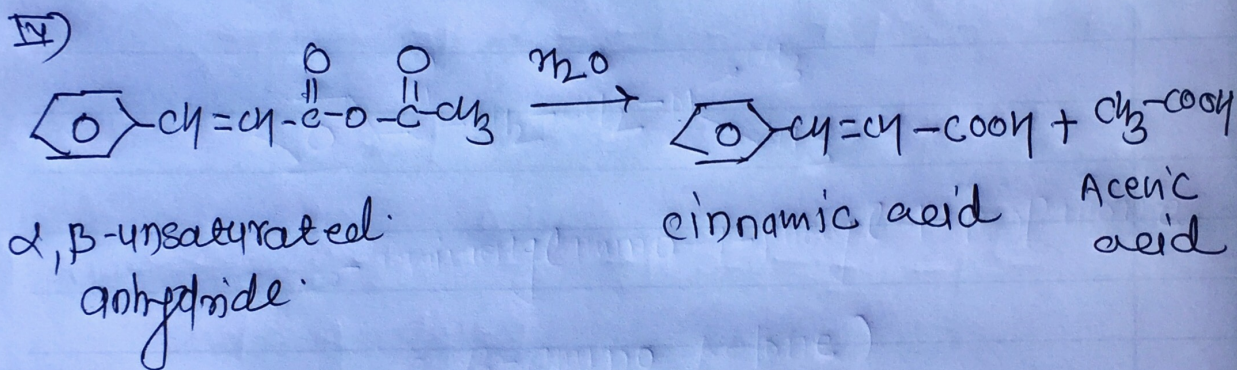 IV)
O O
|| ||
-CH=CH-C-O-C-CH3 H2O → -CH=CH-COOH + CH3-COOH
α,β-unsaturated anhydride.
cinnamic acid
Acetic acid